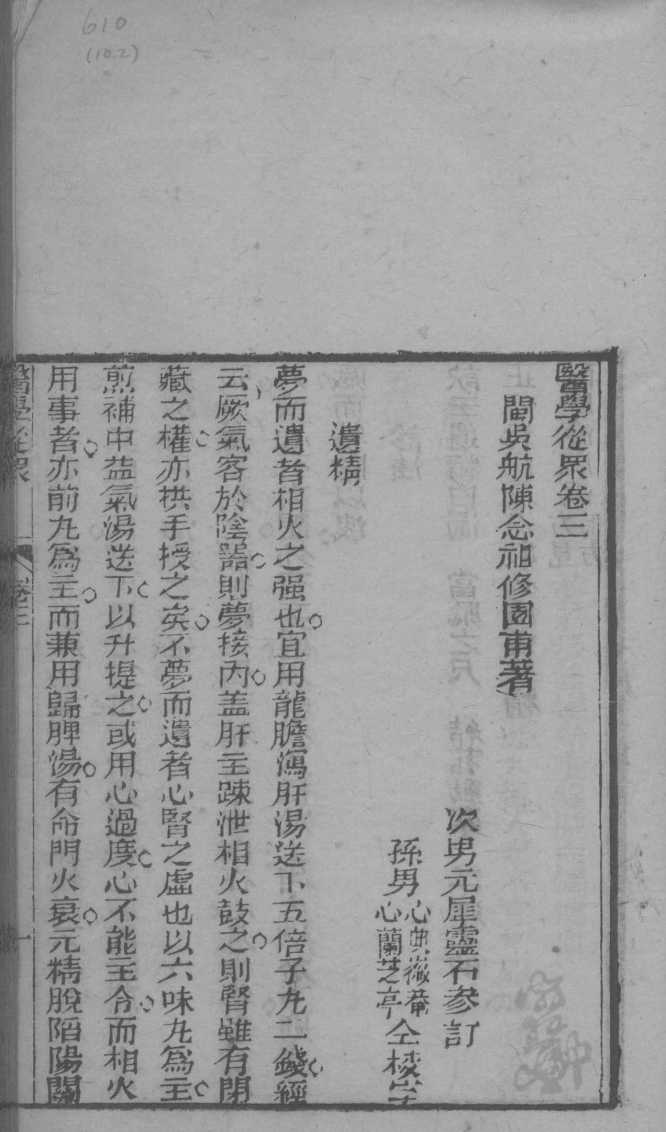 610
(10.2)
醫學從眾卷三
閩吳航陳念祖修園甫著
次男元犀靈石參訂
孫男心典徽菴心蘭芝亭仝校字
遺精
夢而遺者相火之强也宜用龍膽瀉肝湯送下五倍子丸二錢經
云厥氣客於陰器則夢接內盖肝主疎泄相火鼓之則腎雖有閉
藏之權亦拱手授之矣不夢而遺者心腎之虛也以六味丸為主
煎補中益氣湯送下以升提之或用心過度心不能主令而相火
用事者亦前丸為主而兼用歸脾湯有命門火衰元精脫陷陽關
醫學從眾
卷三
一